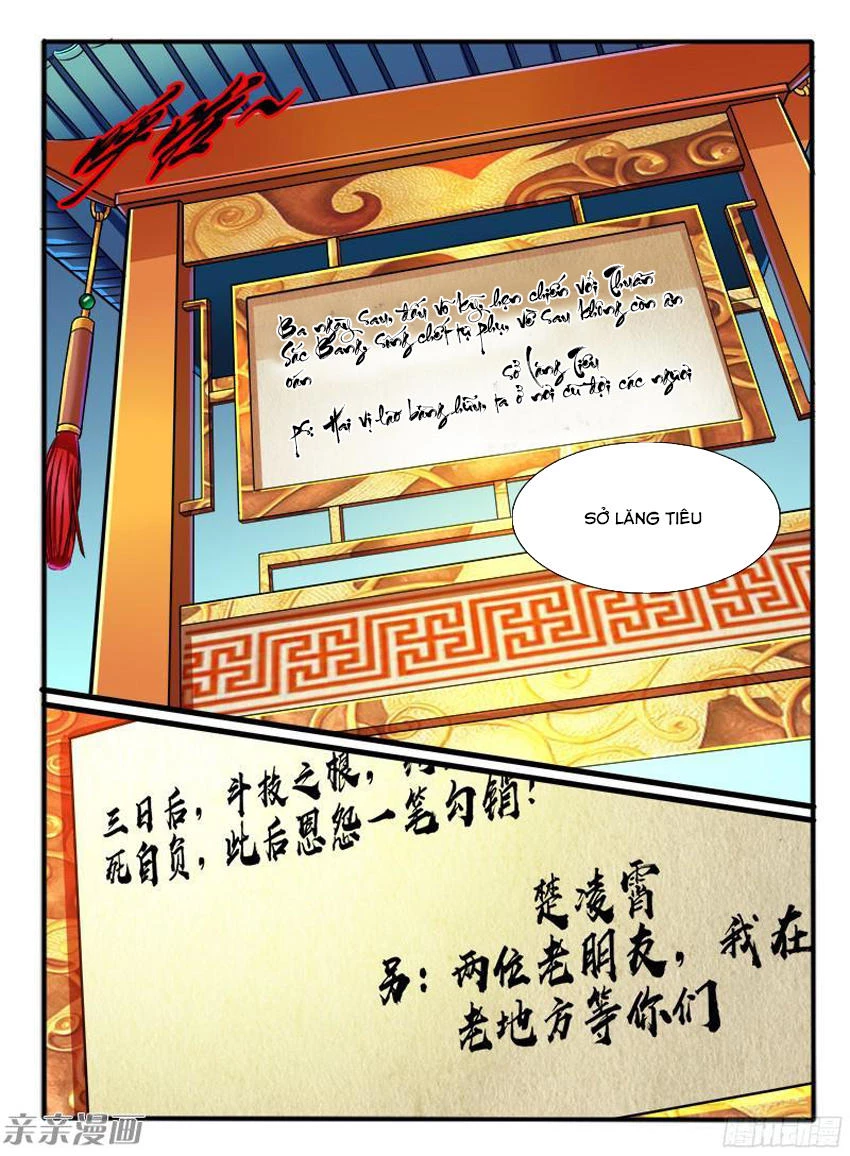 哗啦~
Ba ngày sau, đấu võ kỹ, hẹn chiến với Thuần
Sắc Bang, sống chết tự phụ, về sau không còn ân
oán
Sở Lăng Tiêu
PS: Hai vị lão bằng hữu, ta ở nơi cũ đợi các ngươi
SỞ LĂNG TIÊU
三日后，斗技之根，
死自负，此后恩怨一笔勾销！
楚凌霄
另：两位老朋友，我在
老地方等你们
亲亲漫画
腾讯动漫